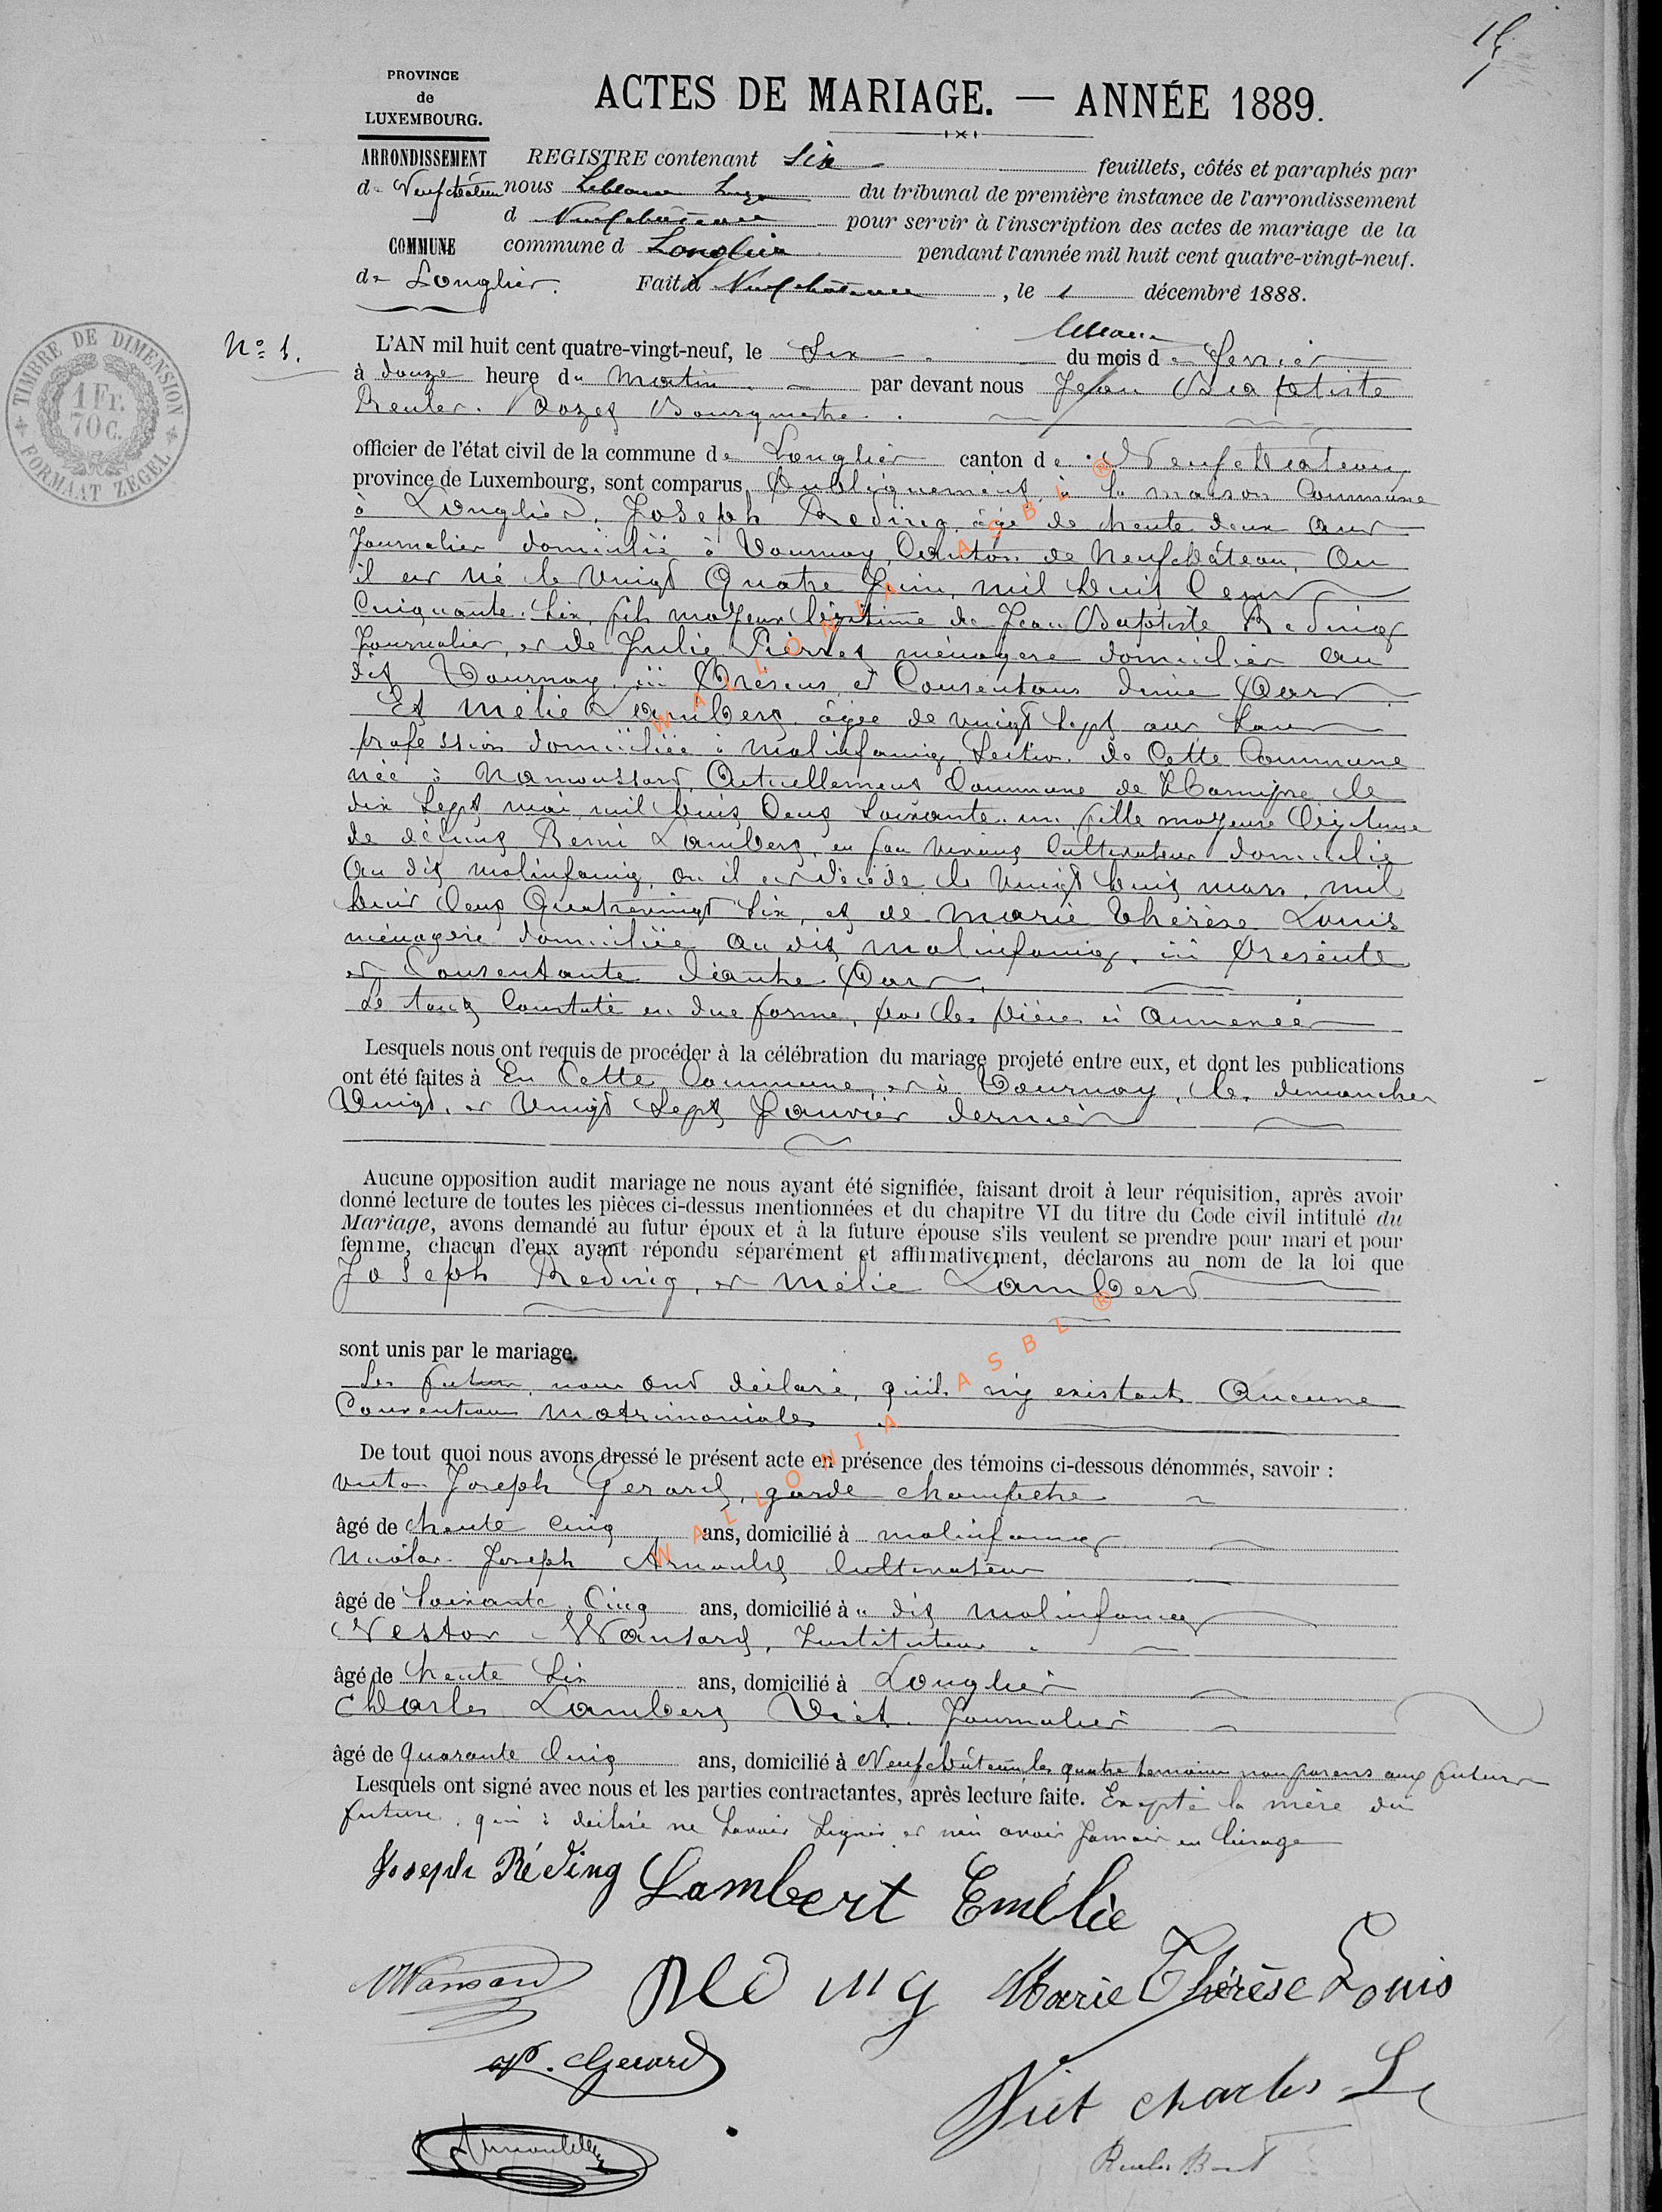 15
PROVINCE
de
LUXEMBOURG.
ACTES DE MARIAGE. — ANNÉE 1889.
ARRONDISSEMENT
de Neufchâteau
COMMUNE
de Longlier.
REGISTRE contenant six feuillets, côtés et paraphés par
nous Leblanc Juge du tribunal de première instance de l'arrondissement
d Neufchâteau pour servir à l'inscription des actes de mariage de la
commune d Longlier pendant l'année mil huit cent quatre-vingt-neuf.
Fait à Neufchâteau, le 1 décembre 1888.
Leblanc
TIMBRE DE DIMENSION
1 Fr.
70 C.
FORMAAT ZEGEL
N° 1.
L'AN mil huit cent quatre-vingt-neuf, le Six du mois de Fevrier
à douze heure du Matin par devant nous Jean Baptiste
Reuler. Bourgmestre.
officier de l'état civil de la commune de Longlier canton de Neufchateau
province de Luxembourg, sont comparus Publiquement, à la maison Commune
à Longlier, Joseph Reding, âgé de trente deux ans
Journalier domicilié à Tournay, Canton de Neufchâteau, Ou
il est né le Vingt Quatre Juin, mil huit Cent
Cinquante Six, fils majeur légitime de Jean Baptiste Reding
Journalier, et de Julie Pierret ménagere domicilier au
dit Tournay, ici Présens, et Consentans d'une Part
Et Mélie Lambert, âgée de vingt Sept ans Sans
profession domiciliée à Molinfaing, Section de Cette Commune
née à Namoussart, Actuellement Commune de Hamipré le
dix Sept mai mil huit Cent Soixante-un, fille majeure légitime
de défunt Remi Lambert, en son vivant Cultivateur domicilié
Au dit Molinfaing, où il est décédé le Vingt huit mars, mil
huit Cent Quatrevingt Six, et de Marie Thérèse Louis
ménagère domiciliée au dit Molinfaing, ici Présente
et Consentante d'autre Part,
Le tout Constaté en due forme, par les Pièces ci Annexée
Lesquels nous ont requis de procéder à la célébration du mariage projeté entre eux, et dont les publications
ont été faites à En Cette Commune, et à Tournay, les dimanches
Vingt, et Vingt Sept Janvier dernier
Aucune opposition audit mariage ne nous ayant été signifiée, faisant droit à leur réquisition, après avoir
donné lecture de toutes les pièces ci-dessus mentionnées et du chapitre VI du titre du Code civil intitulé du
Mariage, avons demandé au futur époux et à la future épouse s'ils veulent se prendre pour mari et pour
femme, chacun d'eux ayant répondu séparément et affirmativement, déclarons au nom de la loi que
Joseph Reding, et Mélie Lambert
sont unis par le mariage.
Les futurs, nous ont déclaré, qu'il n'y existait Aucune
Convention Matrimoniales
De tout quoi nous avons dressé le présent acte en présence des témoins ci-dessous dénommés, savoir :
Victor Joseph Gerard, garde champêtre
âgé de trente cinq ans, domicilié à Molinfaing
Nicolas Joseph Arnould Cultivateur
âgé de Soixante Cinq ans, domicilié à u dit Molinfaing
Nestor Wansard, Instituteur
âgé de trente Six ans, domicilié à Longlier
Charles Lambert Viet Journalier
âgé de Quarante Cinq ans, domicilié à Neufchâteau, les quatre temoins non parens aux futurs
Lesquels ont signé avec nous et les parties contractantes, après lecture faite. Excepté la mère du
future, qui à déclaré ne Savoir Signer et n'en avoir Jamais eu l'usage
Joseph Réding Lambert Emélie
NWansard Reding Marie Thérèse Louis
Gerard
Viet charles L
Arnould
Reuler
WALLONIA ASBL ®
WALLONIA ASBL ®